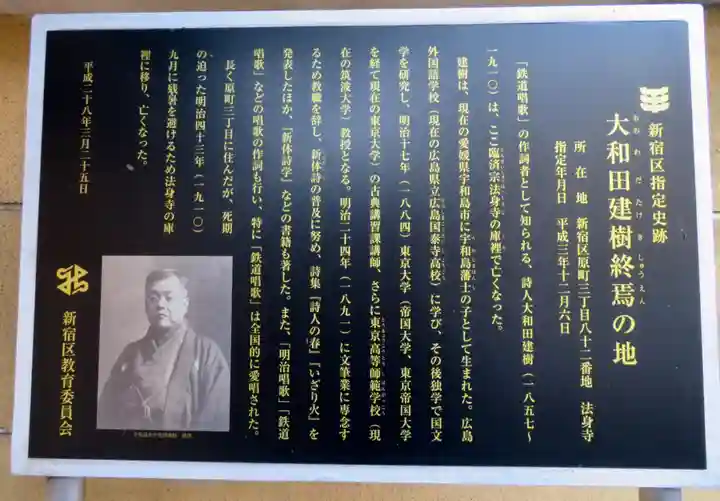 新宿区指定史跡
大和田建樹終焉の地
おおわだたけきしゅうえん
所在地 新宿区原町三丁目八十二番地 法身寺
指定年月日 平成三年十二月六日
「鉄道唱歌」の作詞者として知られる、詩人大和田建樹(一八五七〜
一九一〇)は、ここ臨済宗法身寺の庫裡で亡くなった。
建樹は、現在の愛媛県宇和島市に宇和島藩士の子として生まれた。広島
外国語学校(現在の広島県立広島国泰寺高校)に学び、その後独学で国文
学を研究し、明治十七年(一八八四)東京大学(帝国大学、東京帝国大学
を経て現在の東京大学)の古典講習課講師、さらに東京高等師範学校(現
在の筑波大学)教授となる。明治二十四年(一八九一)に文筆業に専念す
るため教職を辞し、新体詩の普及に努め、詩集『詩人の春』『いざり火』を
発表したほか、『新体詩学』などの書籍も著した。また、「明治唱歌」「鉄道
唱歌」などの唱歌の作詞も行い、特に「鉄道唱歌」は全国的に愛唱された。
長く原町三丁目に住んだが、死期
の迫った明治四十三年(一九一〇)
九月に残暑を避けるため法身寺の庫
裡に移り、亡くなった。
平成二十八年三月二十五日
新宿区教育委員会